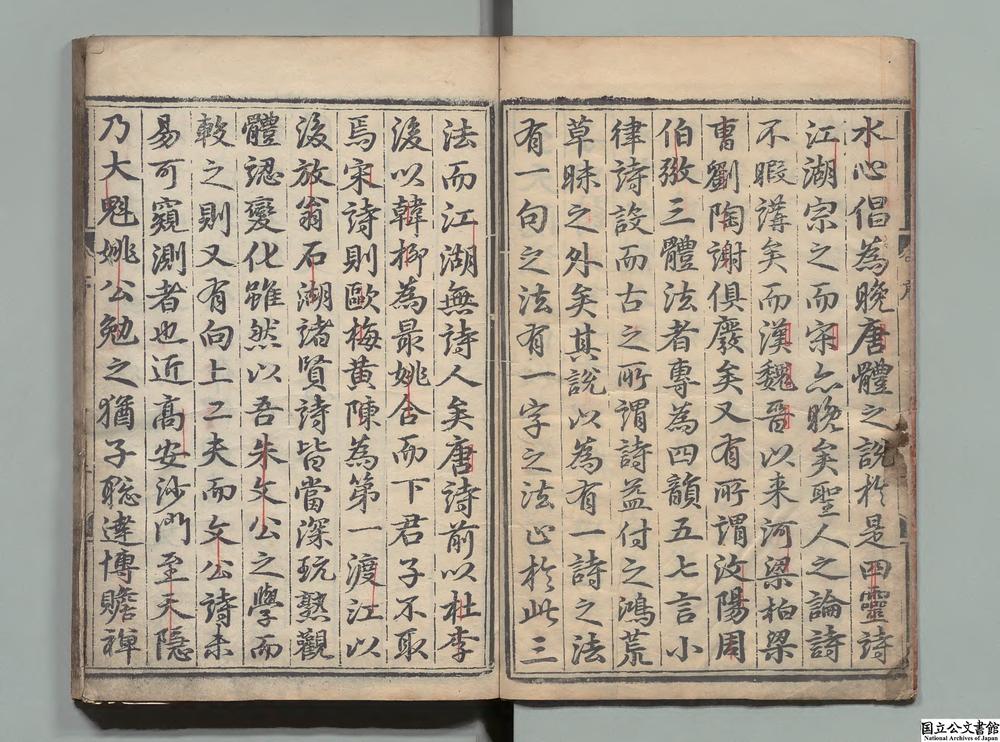 水心倡為晚唐體之説於是四靈詩
江湖宗之而宋亦晚矣聖人之論詩
不暇講矣而漢魏晉以来河梁柏梁
曹劉陶謝俱廢矣又有所謂汶陽周
伯弜三體法者專為四韻五七言小
律詩設而古之所謂詩益付之鴻荒
草昧之外矣其說以為有一詩之法
有一句之法有一字之法止於此三
法而江湖無詩人矣唐詩前以杜李
後以韓柳為最姚合而下君子不取
焉宋詩則歐梅黄陳為第一渡江以
後放翁石湖諸賢詩皆當深玩熟觀
體認變化雖然以吾朱文公之學而
較之則又有向上工夫而文公詩未
易可窺測者也近髙安沙門至天隱
乃大魁姚公勉之猶子聡達博贍禅
国立公文書館
National Archives of Japan